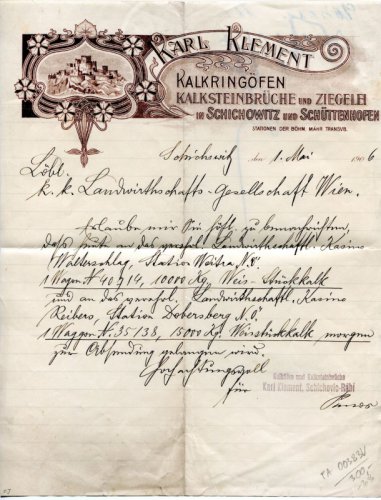 KARL KLEMENT
KALKRINGÖFEN
KALKSTEINBRÜCHE UND ZIEGELEI
IN SCHICHOWITZ UND SCHÜTTENHOFEN
STATIONEN DER BÖHM. MÄHR. TRANSVB.
Schichowitz den 1. Mai 1906
Löbl.
k. k. Landwirthschafts-Gesellschaft Wien.
Erlaube mir Sie höfl. zu benachrichten,
daß heut an das Landwirthschaftl. Kasino
Walterschlag, Station Weitra N.Ö.
1 Wagen N 40714, 10000 Kg. Weis-Stückkalk
und an das Landwirthschaftl. Kasino
Reibers, Station Dobersberg N.Ö.
1 Waggon N. 35138, 15000 Kg. Weisstückkalk morgen
zur Absendung gelangen wird.
Hochachtungsvoll
für
Kalköfen und Kalksteinbrüche
Karl Klement, Schichovic-Rábí
PA 003834
300,-